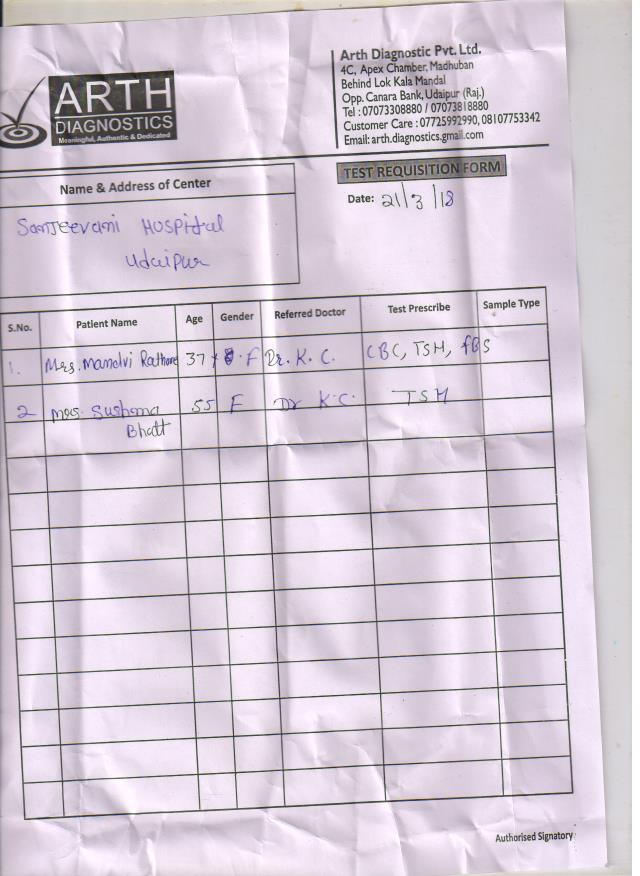 ARTH
DIAGNOSTICS
Meaningful, Authentic & Dedicated
Arth Diagnostic Pvt. Ltd.
4C, Apex Chamber, Madhuban
Behind Lok Kala Mandal
Opp. Canara Bank, Udaipur (Raj.)
Tel : 07073308880 / 07073818880
Customer Care : 07725992990, 08107753342
Email: arth.diagnostics.gmail.com
TEST REQUISITION FORM
Name & Address of Center
Date: 21/3/18
SanJeevani HOSPital
Udaipur
S.No. Patient Name Age Gender Referred Doctor Test Prescribe Sample Type
1. Mrs. Mandvi Rathore 37 F Dr. K. C. CBC, TSH, fBS
2 Mrs. Sushma 55 F Dr K.C. TSH
Bhatt
Authorised Signatory